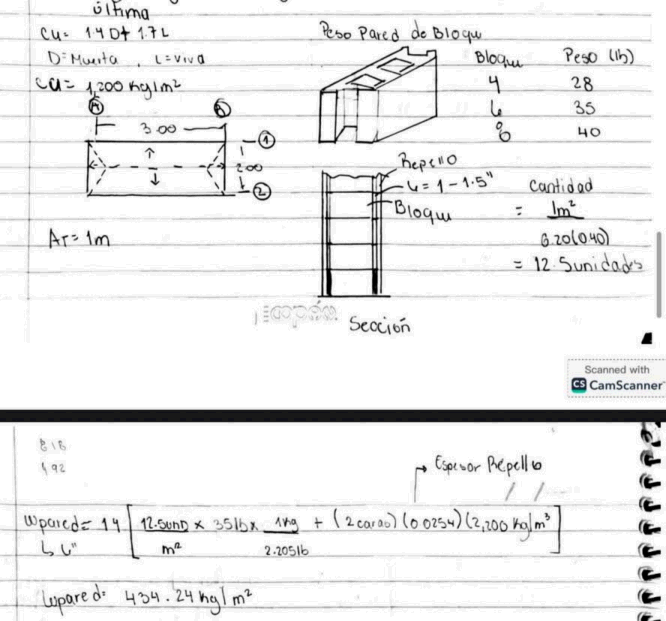 última
Cu= 1.4D+ 1.7L
D=Muerta, L=viva
Cu= 1,200 Kg/m²
A B
3.00
1
2.00
2
AT= 1m
Peso Pared de Bloqu
Bloque Peso (lb)
4 28
6 35
8 40
Repello
t= 1-1.5"
Bloque
Sección
Cantidad
= 1m²
0.20(0.40)
= 12.5unidades
Scanned with
CS CamScanner
Espesor Repello
Wpared= 1.4 [12.5UND/m² × 35lb × 1Kg/2.205lb + (2caras)(0.0254)(2,200 Kg/m³]
↳ 6"
Wpared= 434.24 kg/m²